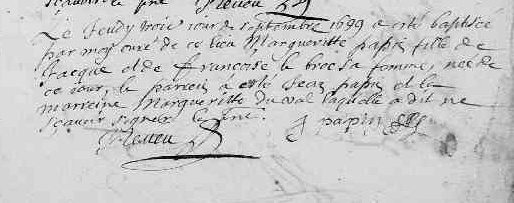 sçavoir signé
Le Jeudy trois jour de septembre 1699 a esté baptisée
par moy curé de ce lieu Margueritte papin fille de
Jacque et de francoise le broc sa femme, née de
ce jour, le parein à esté Jean papin et la
marreine Margueritte duval laquelle a dit ne
sçavoir signer
J papin